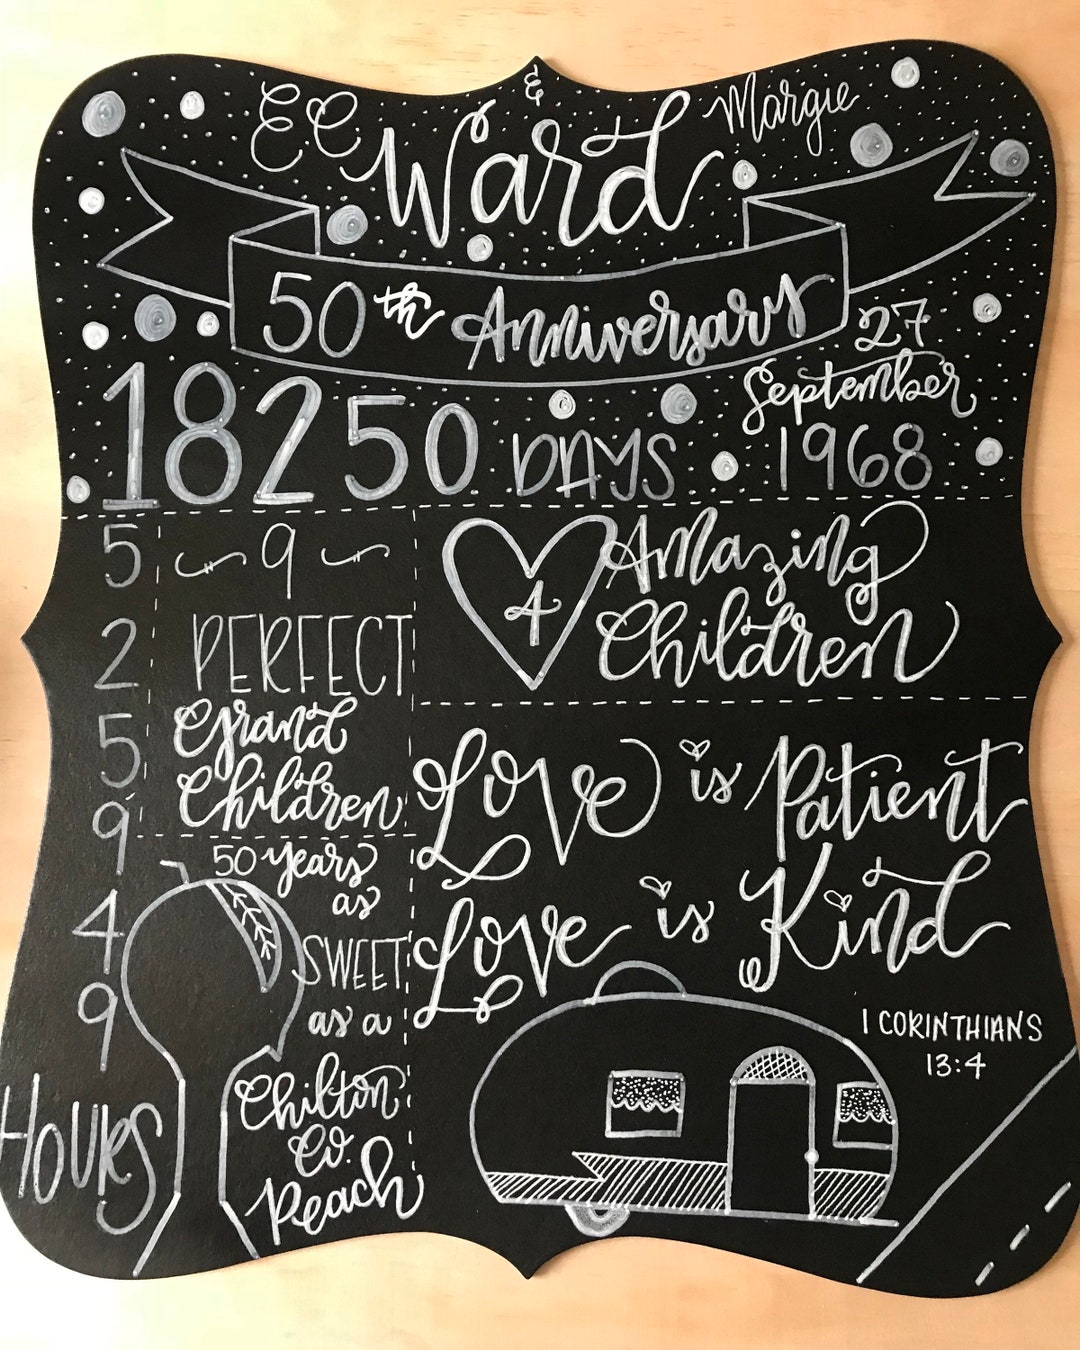 E.C. & Margie
Ward
50th Anniversary
27
September
1968
18250 DAYS
5
2
5
9
4
9
HOURS
9
PERFECT
Grand
Children
4 Amazing
Children
Love is Patient
Love is Kind
1 CORINTHIANS
13:4
50 Years
as
SWEET
as a
Chilton
Co.
Peach